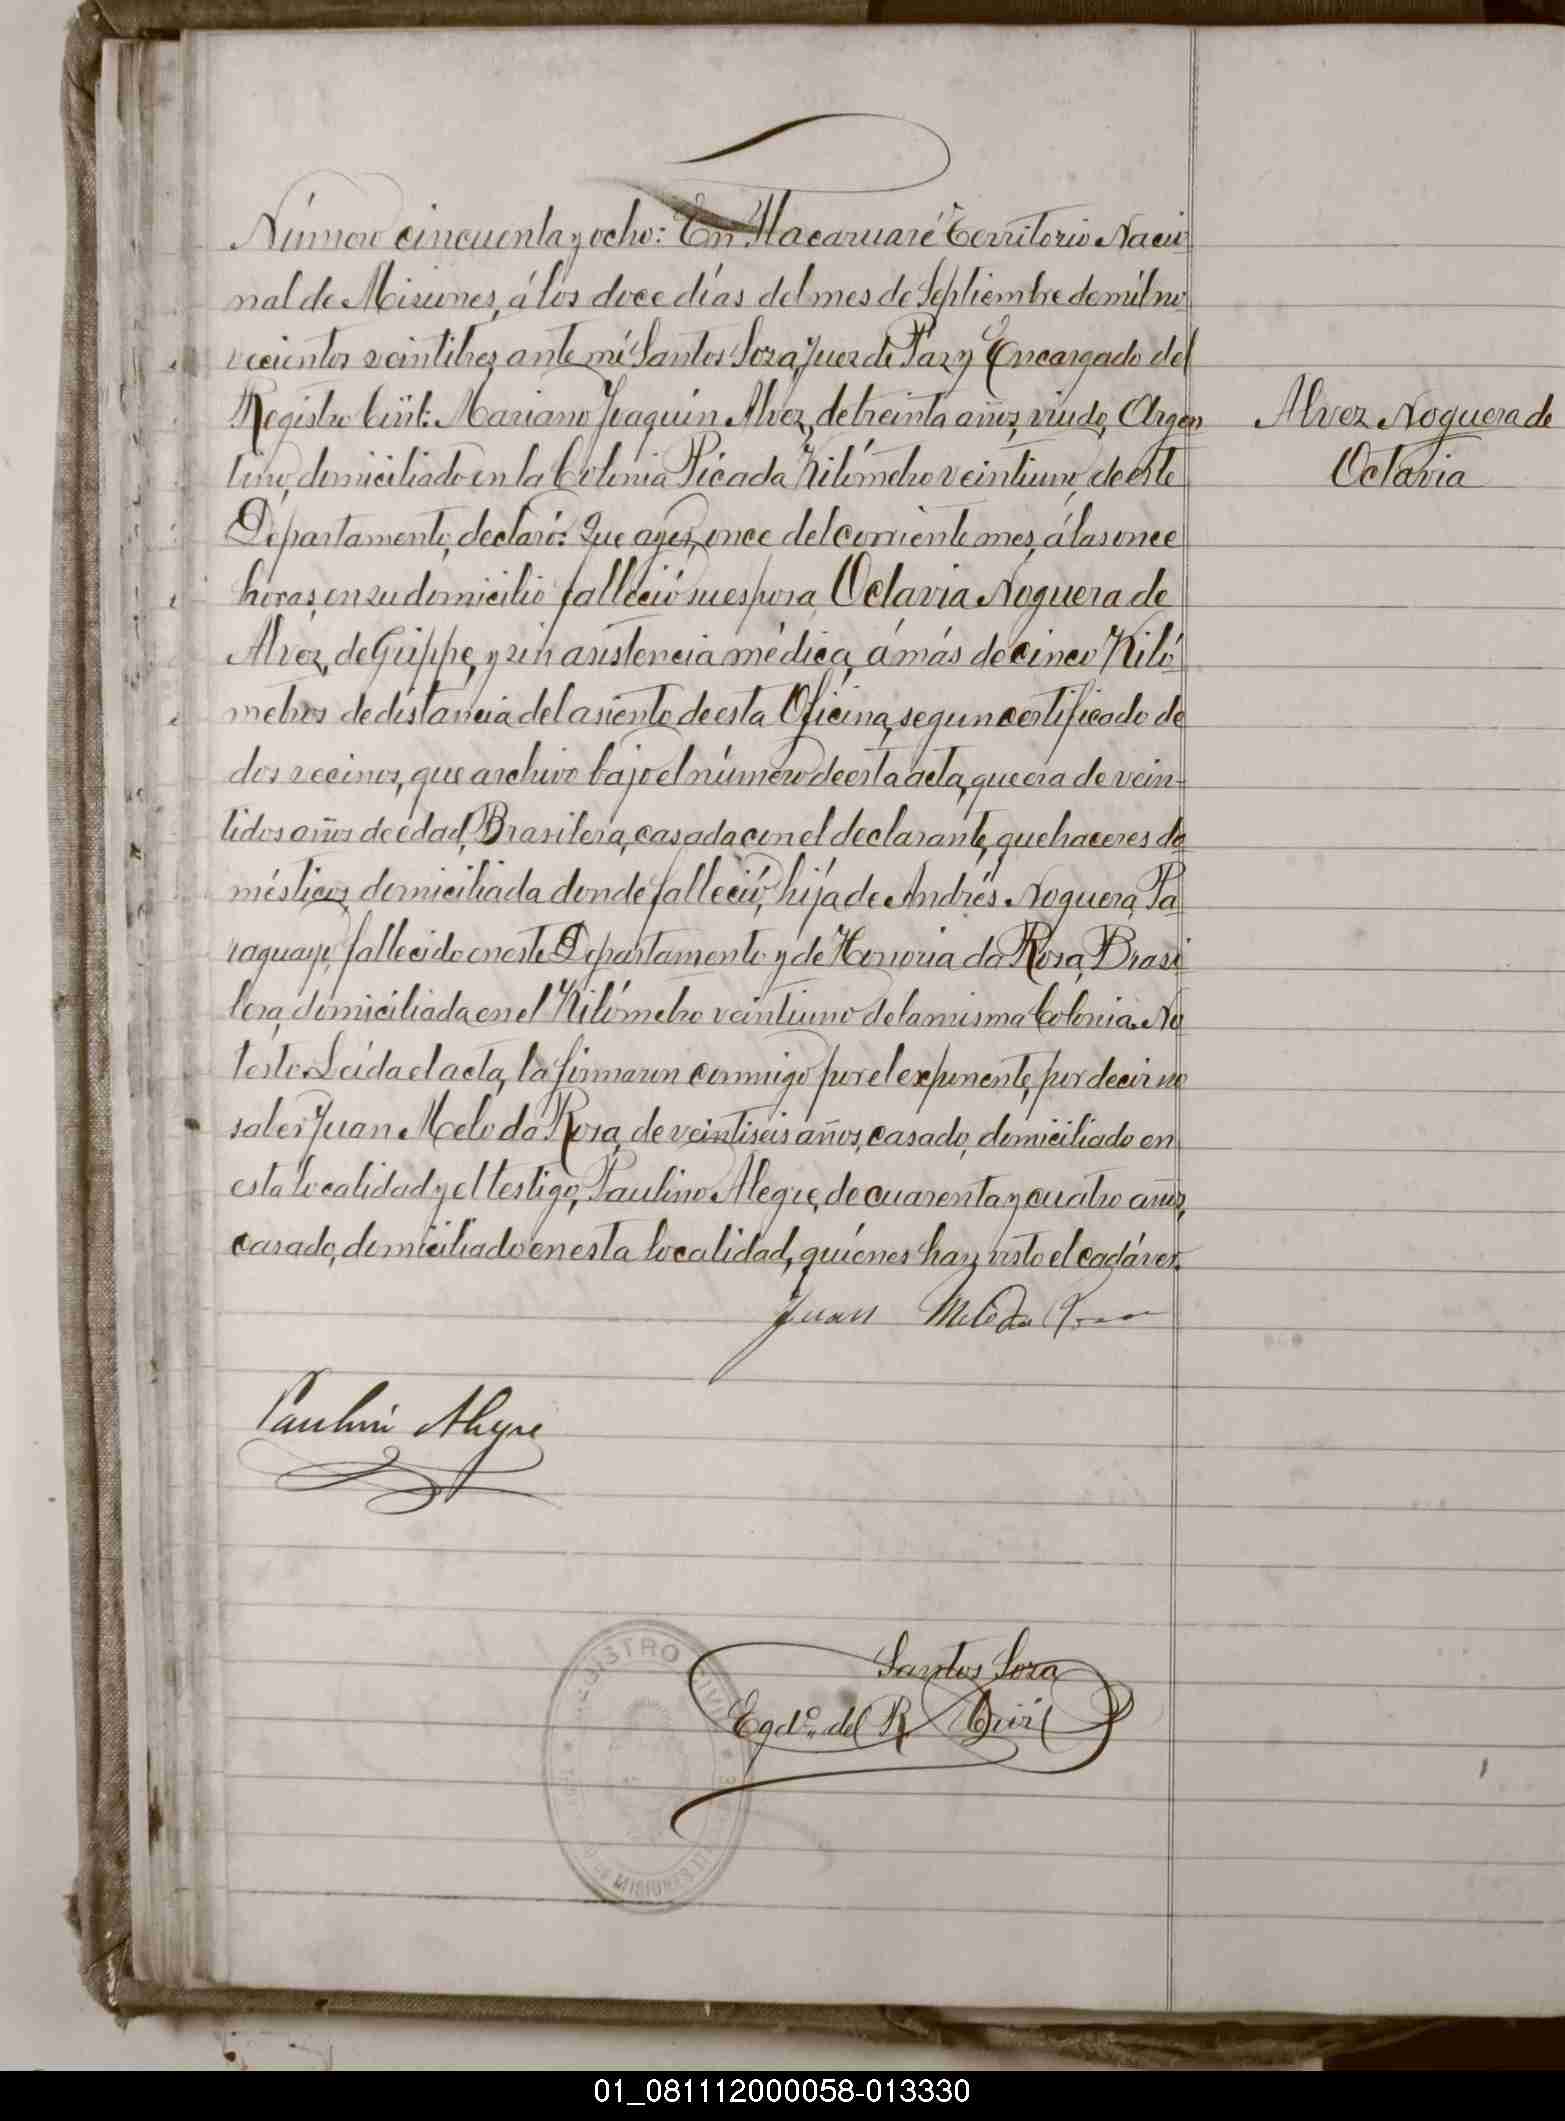 Número cincuenta y ocho: En Itacaruaré Territorio Nacio
nal de Misiones, á los doce días del mes de Septiembre de mil no
vecientos veintitres, ante mí Santos Soza, Juez de Paz y Encargado del
Registro Civil: Mariano Joaquín Alvez, de treinta años, viudo, Argen
tino, domiciliado en la Colonia Picada Kilómetro veintiuno de este
Departamento, declaró: Que ayer, once del corriente mes, á las once
horas, en su domicilio falleció su esposa Octavia Noguera de
Alvez, de Grippe, y sin asistencia médica, á más de cinco Kiló
metros de distancia del asiento de esta Oficina, segun certificado de
dos vecinos, que archivo bajo el número de esta acta, que era de vein-
tidos años de edad, Brasilera, casada con el declarante, quehaceres do
mésticos, domiciliada donde falleció, hija de Andrés Noguera, Pa
raguayo, fallecido en este Departamento y de Honoria da Rosa, Brasi
lera, domiciliada en el Kilómetro veintiuno de la misma Colonia. No
testo. Leída el acta, la firmaron conmigo por el exponente, por decir no
saber Juan Melo da Rosa, de veintiseis años, casado, domiciliado en
esta localidad y el testigo, Paulino Alegre, de cuarenta y cuatro años,
casado, domiciliado en esta localidad, quiénes han visto el cadáver.
Alvez Noguera de
Octavia
Juan Melo da Rosa
Paulino Alegre
Santos Soza
Egdo. del R. Civil
REGISTRO CIVIL
MISIONES
01_081112000058-013330